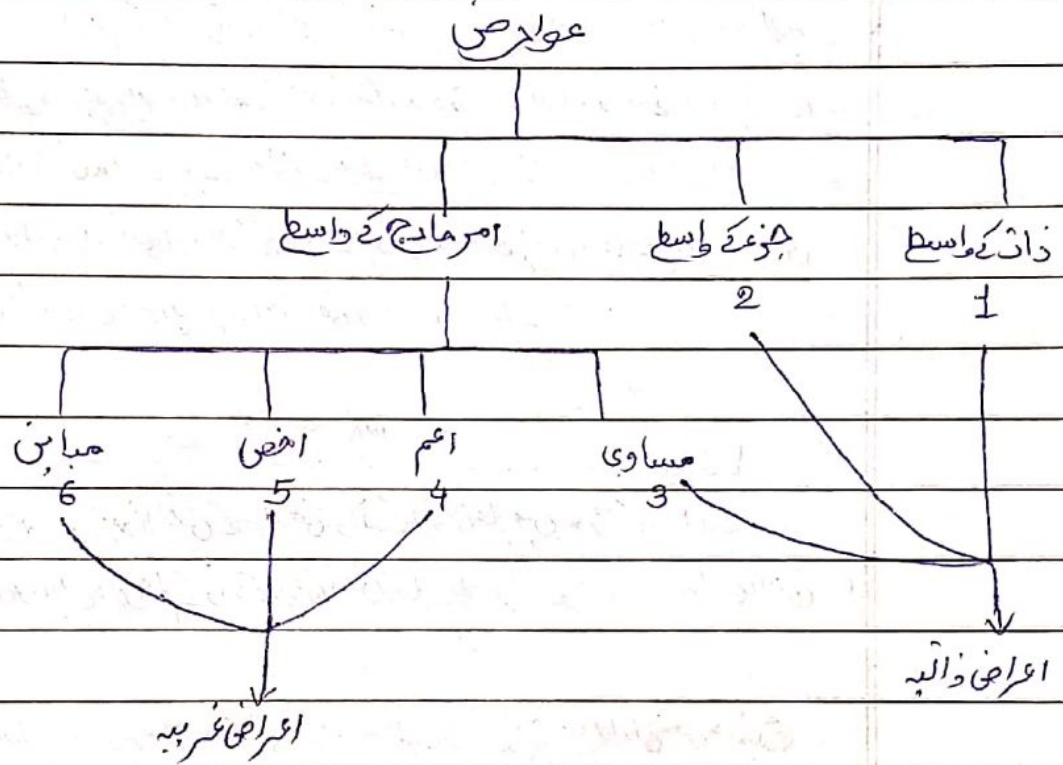 عوارض
ذات کے واسطے
جزء کے واسطے
امر خارج کے واسطے
1
2
مساوی
اعم
اخص
مباین
3
4
5
6
اعراض ذاتیہ
اعراض غریبہ